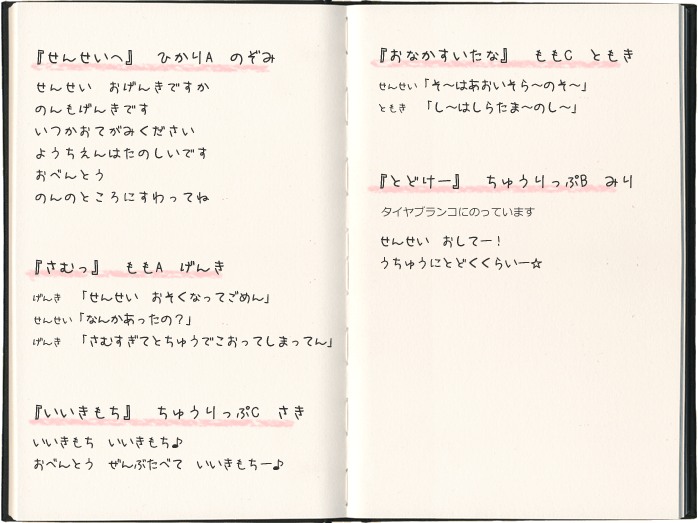 『せんせいへ』　ひかりA　のぞみ
せんせい　おげんきですか
のんもげんきです
いつかおてがみください
ようちえんはたのしいです
おべんとう
のんのところにすわってね
『さむっ』　ももA　げんき
げんき　「せんせい　おそくなってごめん」
せんせい「なんかあったの？」
げんき　「さむすぎてとちゅうでこおってしまってん」
『いいきもち』　ちゅうりっぷC　さき
いいきもち　いいきもち♪
おべんとう　ぜんぶたべて　いいきもちー♪
『おなかすいたな』　ももC　ともき
せんせい「そ〜はあおいそら〜のそ〜」
ともき　「し〜はしらたま〜のし〜」
『とどけー』　ちゅうりっぷB　みり
タイヤブランコにのっています
せんせい　おしてー！
うちゅうにとどくくらいー☆